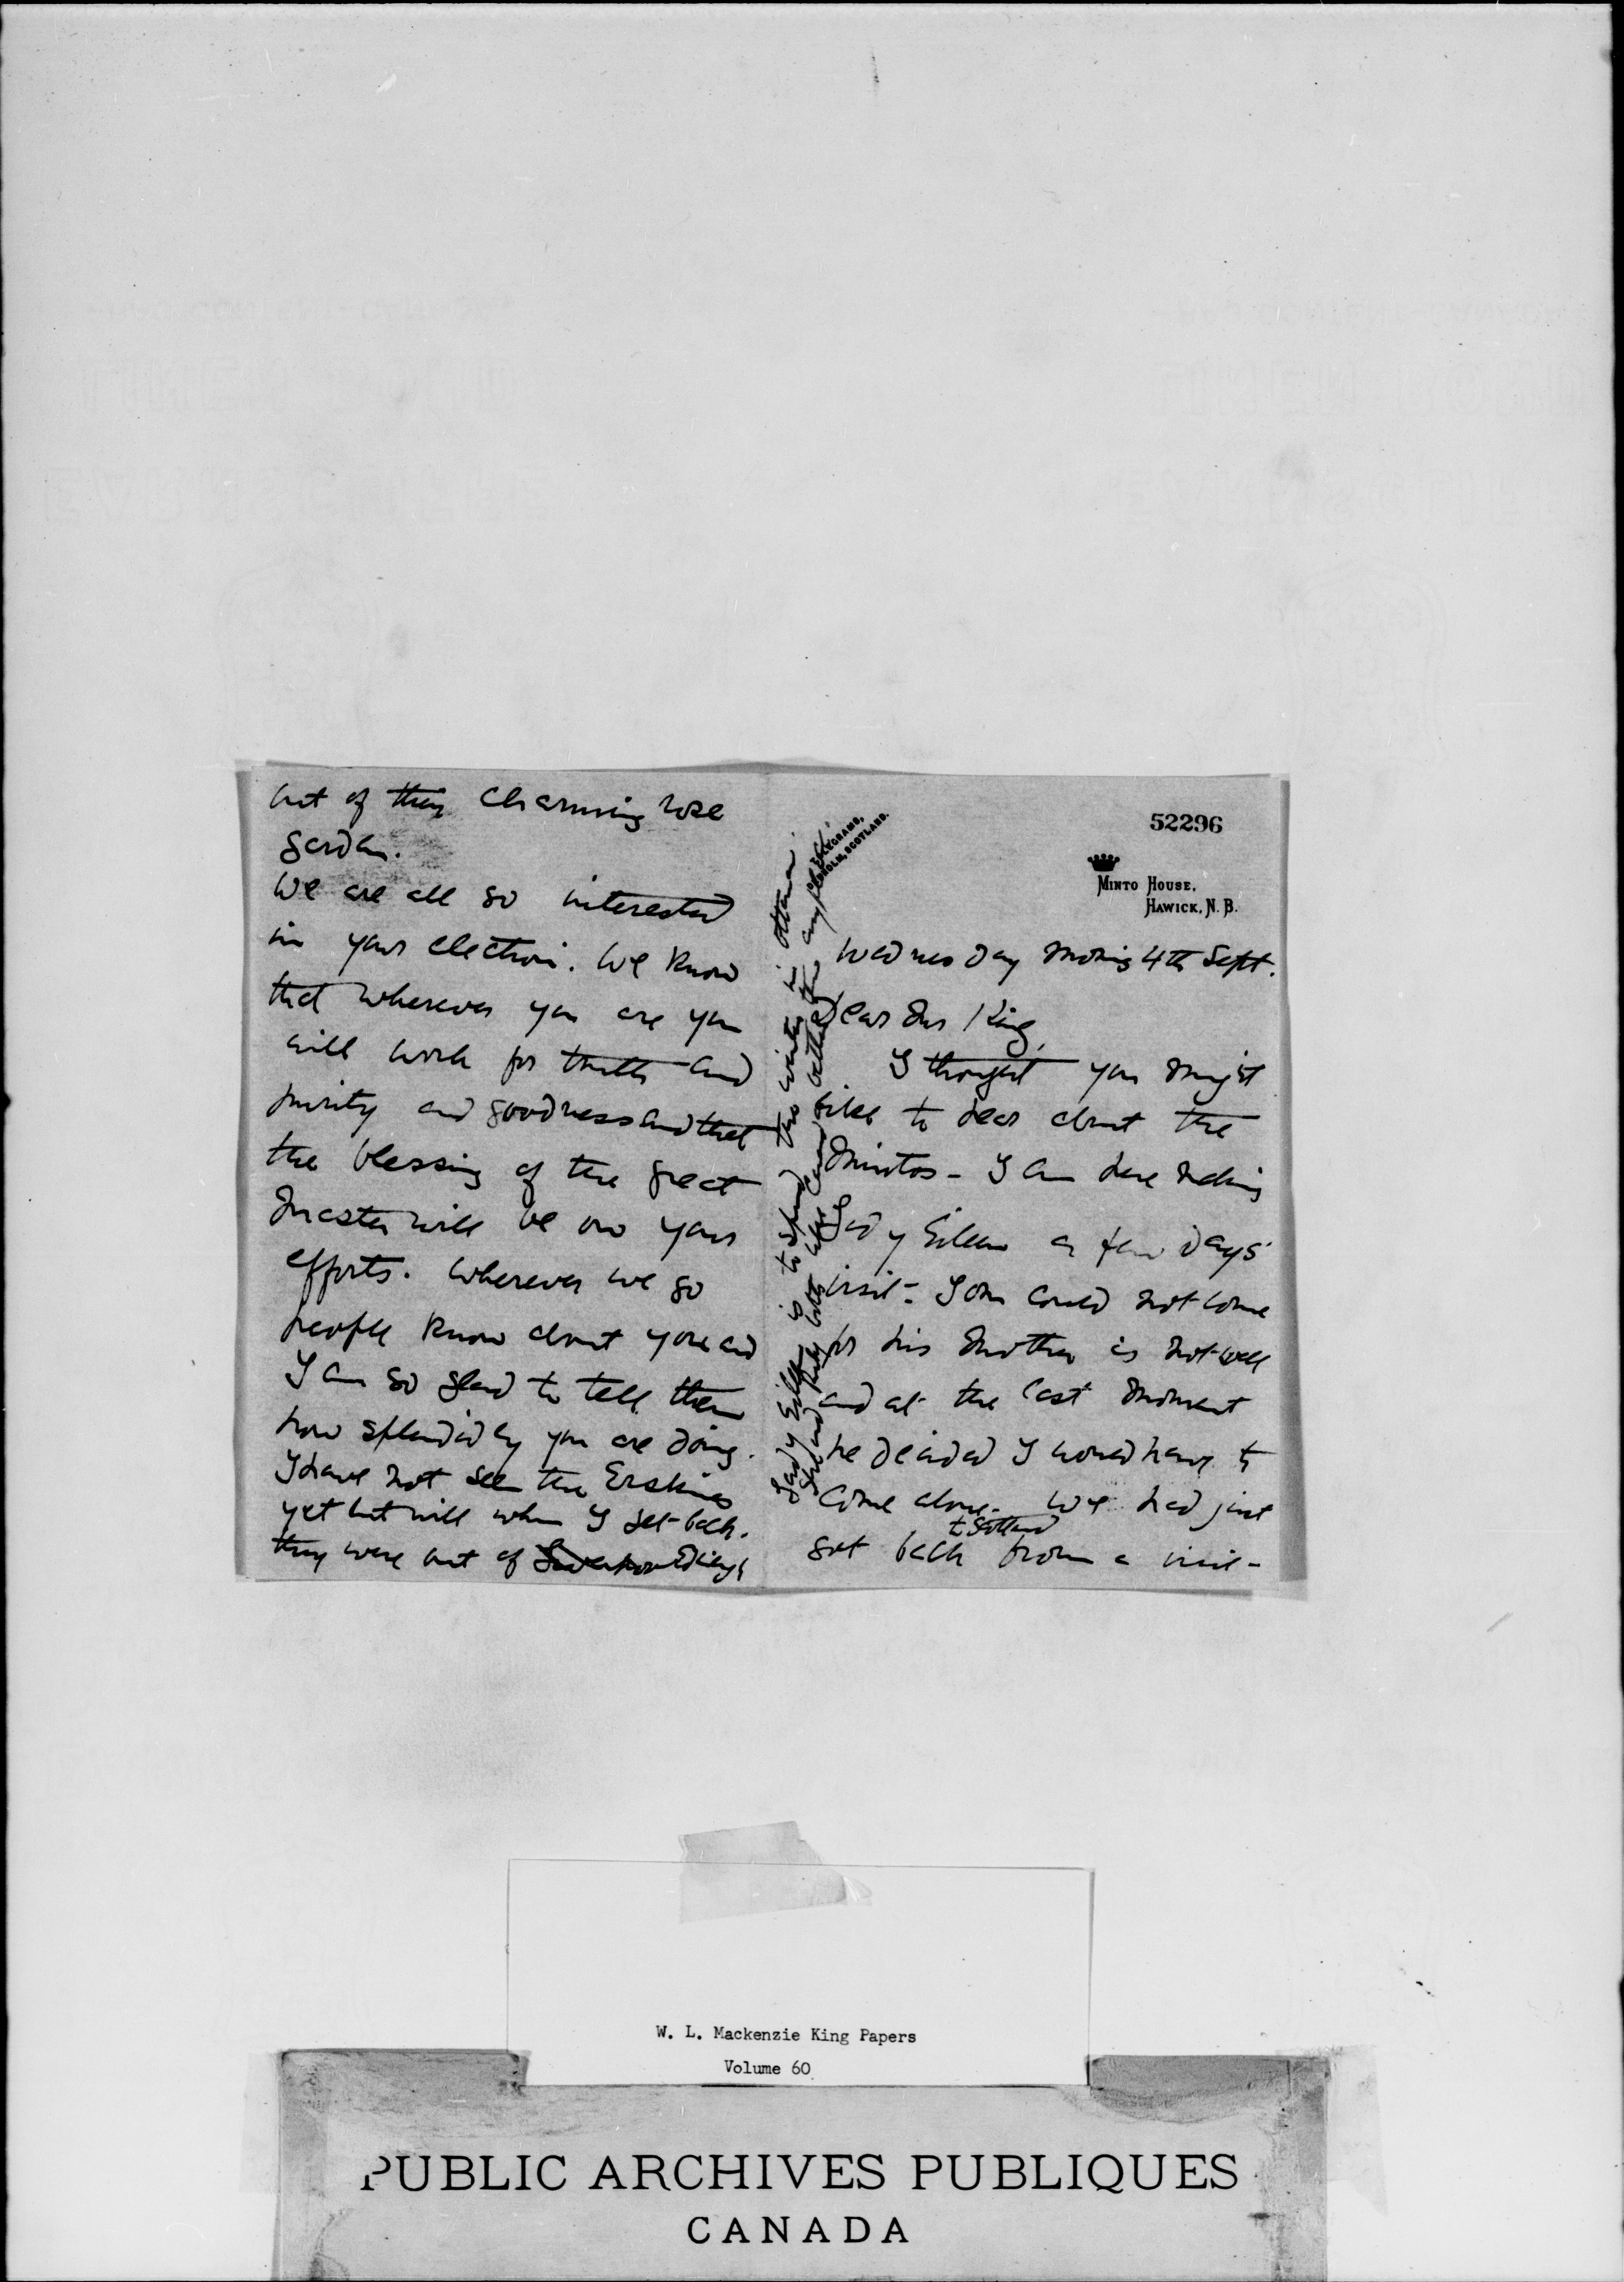 52296
MINTO HOUSE,
HAWICK, N. B.
TELEGRAMS,
HOLM, SCOTLAND.
Wednesday morning 4th Sept.
Dear Mr King,
I thought you might
like to hear about the
Mintos - I am here making
Lady Eileen a few days'
visit - Tom could not come
for his mother is not well
and at the last moment
he decided I would have to
come alone. We had just
got back to Scotland from a visit -
out of their charming rose
garden.
We are all so interested
in your election. We know
that wherever you are you
will work for truth and
purity and goodness and that
the blessing of the great
Master will be on your
efforts. Wherever we go
people know about you and
I am so glad to tell them
how splendidly you are doing.
I have not seen the Erskines
yet but will when I get back.
they were out of
Lady Eileen is to spend this winter in Ottawa.
She and Ruby both like Canada better than any place.
W. L. Mackenzie King Papers
Volume 60
PUBLIC ARCHIVES PUBLIQUES
CANADA